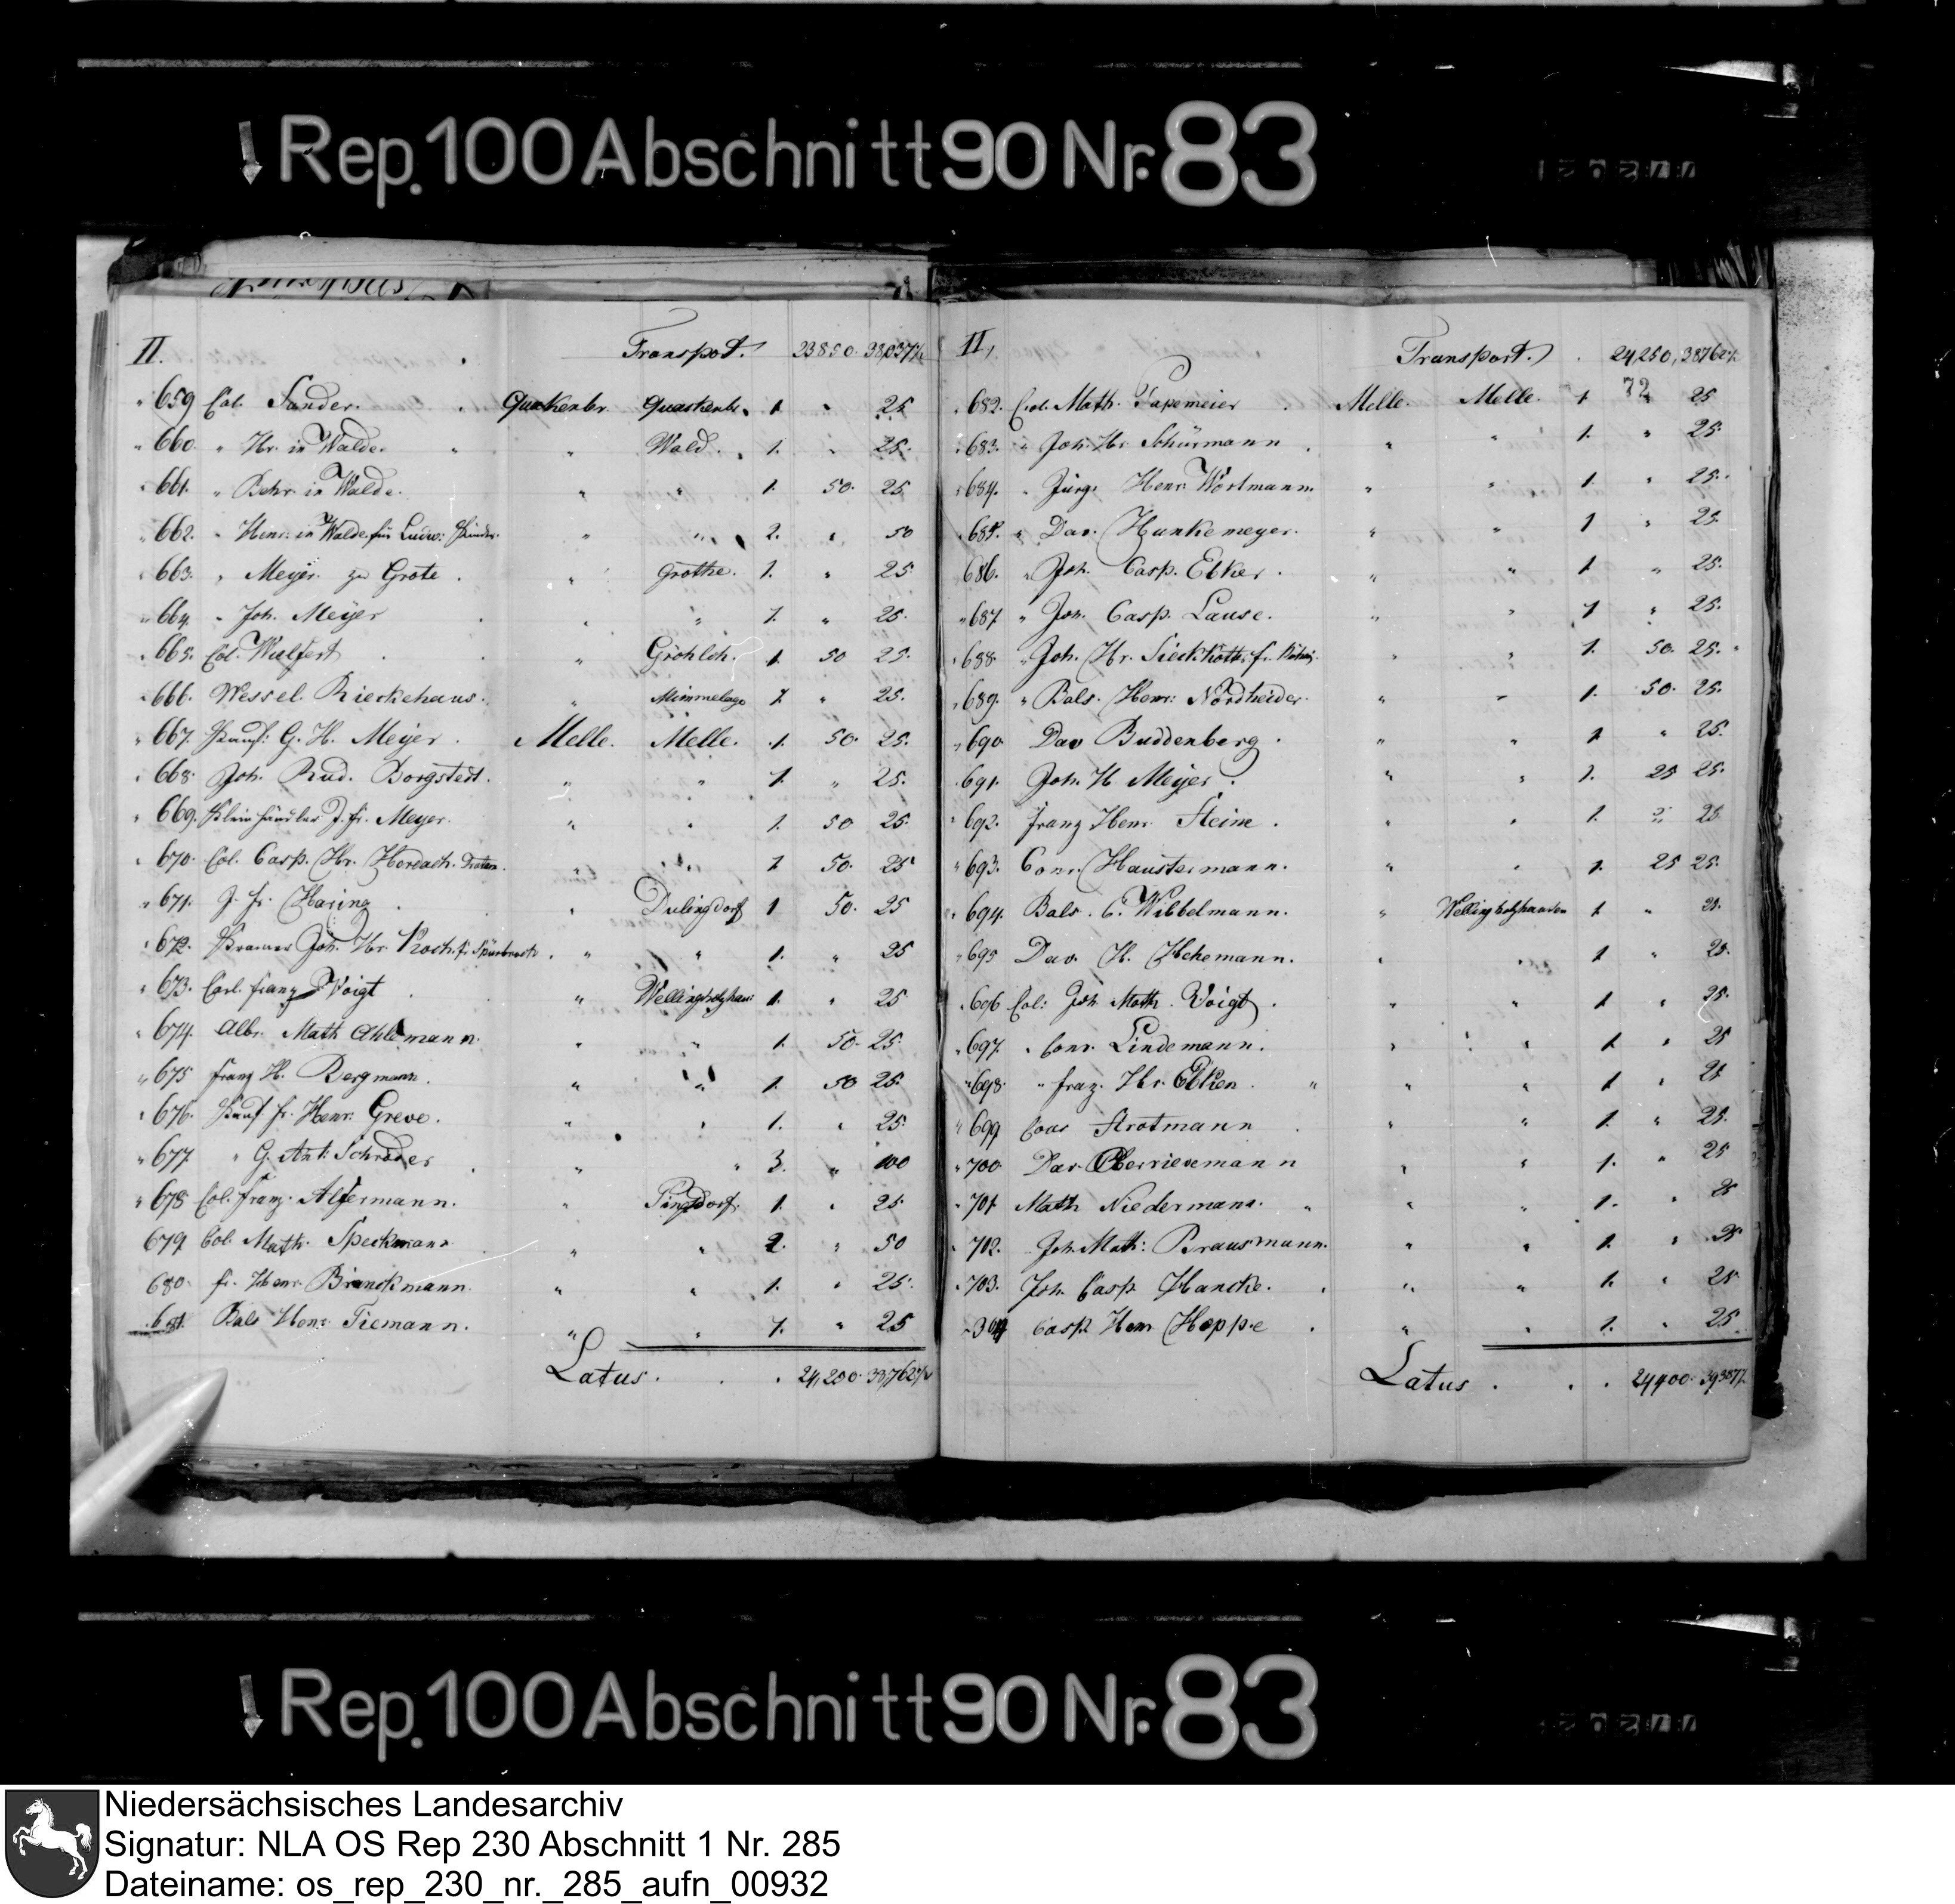 Rep. 100 Abschnitt 90 Nr. 83
II. Transport. 23850. 38,037½
659 Col. Sander. Quakenbr. Quackenb. 1. " 25
660. " Hr. in Walde. " Wald. 1. " 25.
661. " Behr. in Walde. " " 1. 50. 25
662. " Henr. in Walde für Ludw: " " 2. " 50
663. " Meyer zu Grote. " Grothe. 1. " 25
664. " Joh. Meyer " " 1. " 25.
665. Col. Wulfert " Gröhlch. 1. 50 25.
666. Wessel Rierkehaus. " Mimmelage 1. " 25.
667. Kauf: G. H. Meyer. Melle. Melle. 1. 50. 25.
668. Joh. Rud. Borgstedt. " " 1. " 25.
669. Kleinhändler J. fr. Meyer. " " 1. 50 25.
670. Col. Casp. Hr. " " 1 50. 25
671. J. fr. Haring " Dulingdorf 1 50. 25
672. Kramer Joh. Hr. Koch. " " 1. " 25
673. Carl franz Voigt " Wellingholzhau: 1. " 25
674. Albr. Math Ahlemann. " " 1. 50. 25.
675 franz H. Bergmann. " " 1. 50 25.
676. Kauf. fr. Henr. Greve. " " 1. " 25.
677. " G. Ant: Schröder " " 3. " 100
678 Col. Franz. Alfermann. " Pingdorf. 1. " 25
679 Col. Math. Speckmann " " 2. " 50
680. fr. Henr. Brinckmann. " " 1. " 25.
681. Bals Henr Tiemann. " " 1. " 25
Latus. 24,250. 38,762½
II, Transport. 24,250, 38762½
72
682. Col. Math. Papemeier Melle. Melle. 1 " 25
683. " Joh. Hr. Schürmann " " 1. " 25
684. " Jürg. Henr. Wortmann. " " 1. " 25.
685. " Dav. Hankemeyer. " " 1 " 25.
686. " Joh. Casp. Elker. " " 1 " 25.
687 " Joh. Casp. Lause. " " 1 " 25.
688. " Joh. Hr. Sieckkötter fr. " " 1. 50. 25.
689. " Bals. Henr: Nordheider. " " 1. 50. 25.
690 Dav Buddenberg. " " 1 " 25.
691. Joh. H Meyer. " " 1. 25 25.
692. franz Henr. Steine. " " 1. " 25
693. Conr. Haustermann. " " 1. 25 25.
694. Bals. C. Wibbelmann. " Wellingholzhausen 1 " 25.
695 Dav. H. Hehemann. " " 1 " 25.
696 Col: Joh Math. Voigt. " " 1 " 25.
697. " Conr. Lindemann. " " 1. " 25
698. " franz. Hr. Elken. " " 1 " 25
699 Strotmann " " 1. " 25.
700. Dav. Oberniewemann " " 1. " 25
701 Math Niedermann. " " 1. " 25
702. Joh. Math: Brausmann. " " 1. " 25
703. Joh. Casp. Hancke. " " 1. " 25
704 Casp. Henr Hoppe " " 1. " 25.
Latus. 24400. 39387½
Rep. 100 Abschnitt 90 Nr. 83
Niedersächsisches Landesarchiv
Signatur: NLA OS Rep 230 Abschnitt 1 Nr. 285
Dateiname: os_rep_230_nr._285_aufn_00932